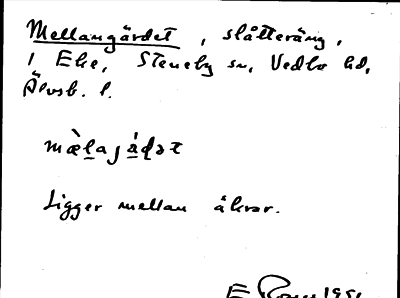 Mellangärdet, slåtteräng,
i Ehe, Steneby sn, Vedbo hd,
Älvsb. l.
mæ̀laɟá̱ḍət
Ligger mellan åkrar.
E 1951